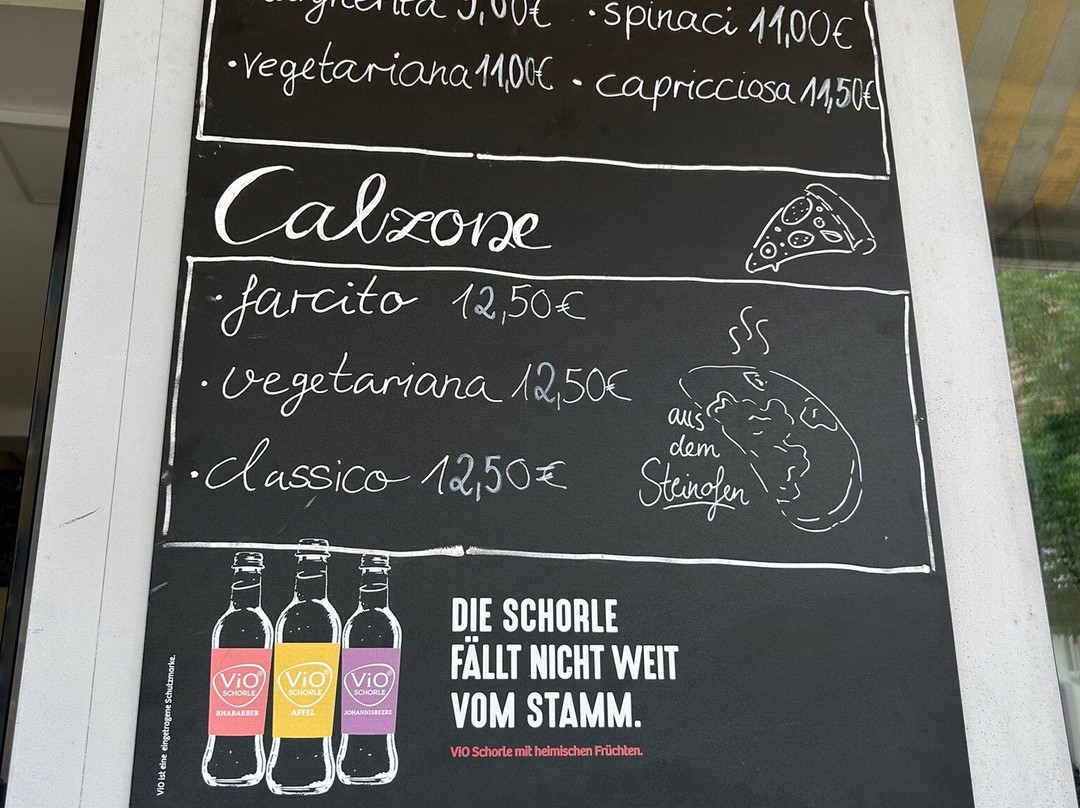 9,00€ · spinaci 11,00€
· vegetariana 11,00€ · capricciosa 11,50€
Calzone
· farcito 12,50€
· vegetariana 12,50€
· classico 12,50€
aus
dem
Steinofen
DIE SCHORLE
FÄLLT NICHT WEIT
VOM STAMM.
ViO Schorle mit heimischen Früchten.
ViO®
SCHORLE
RHABARBER
ViO®
SCHORLE
APFEL
ViO®
SCHORLE
JOHANNISBEERE
ViO ist eine eingetragene Schutzmarke.